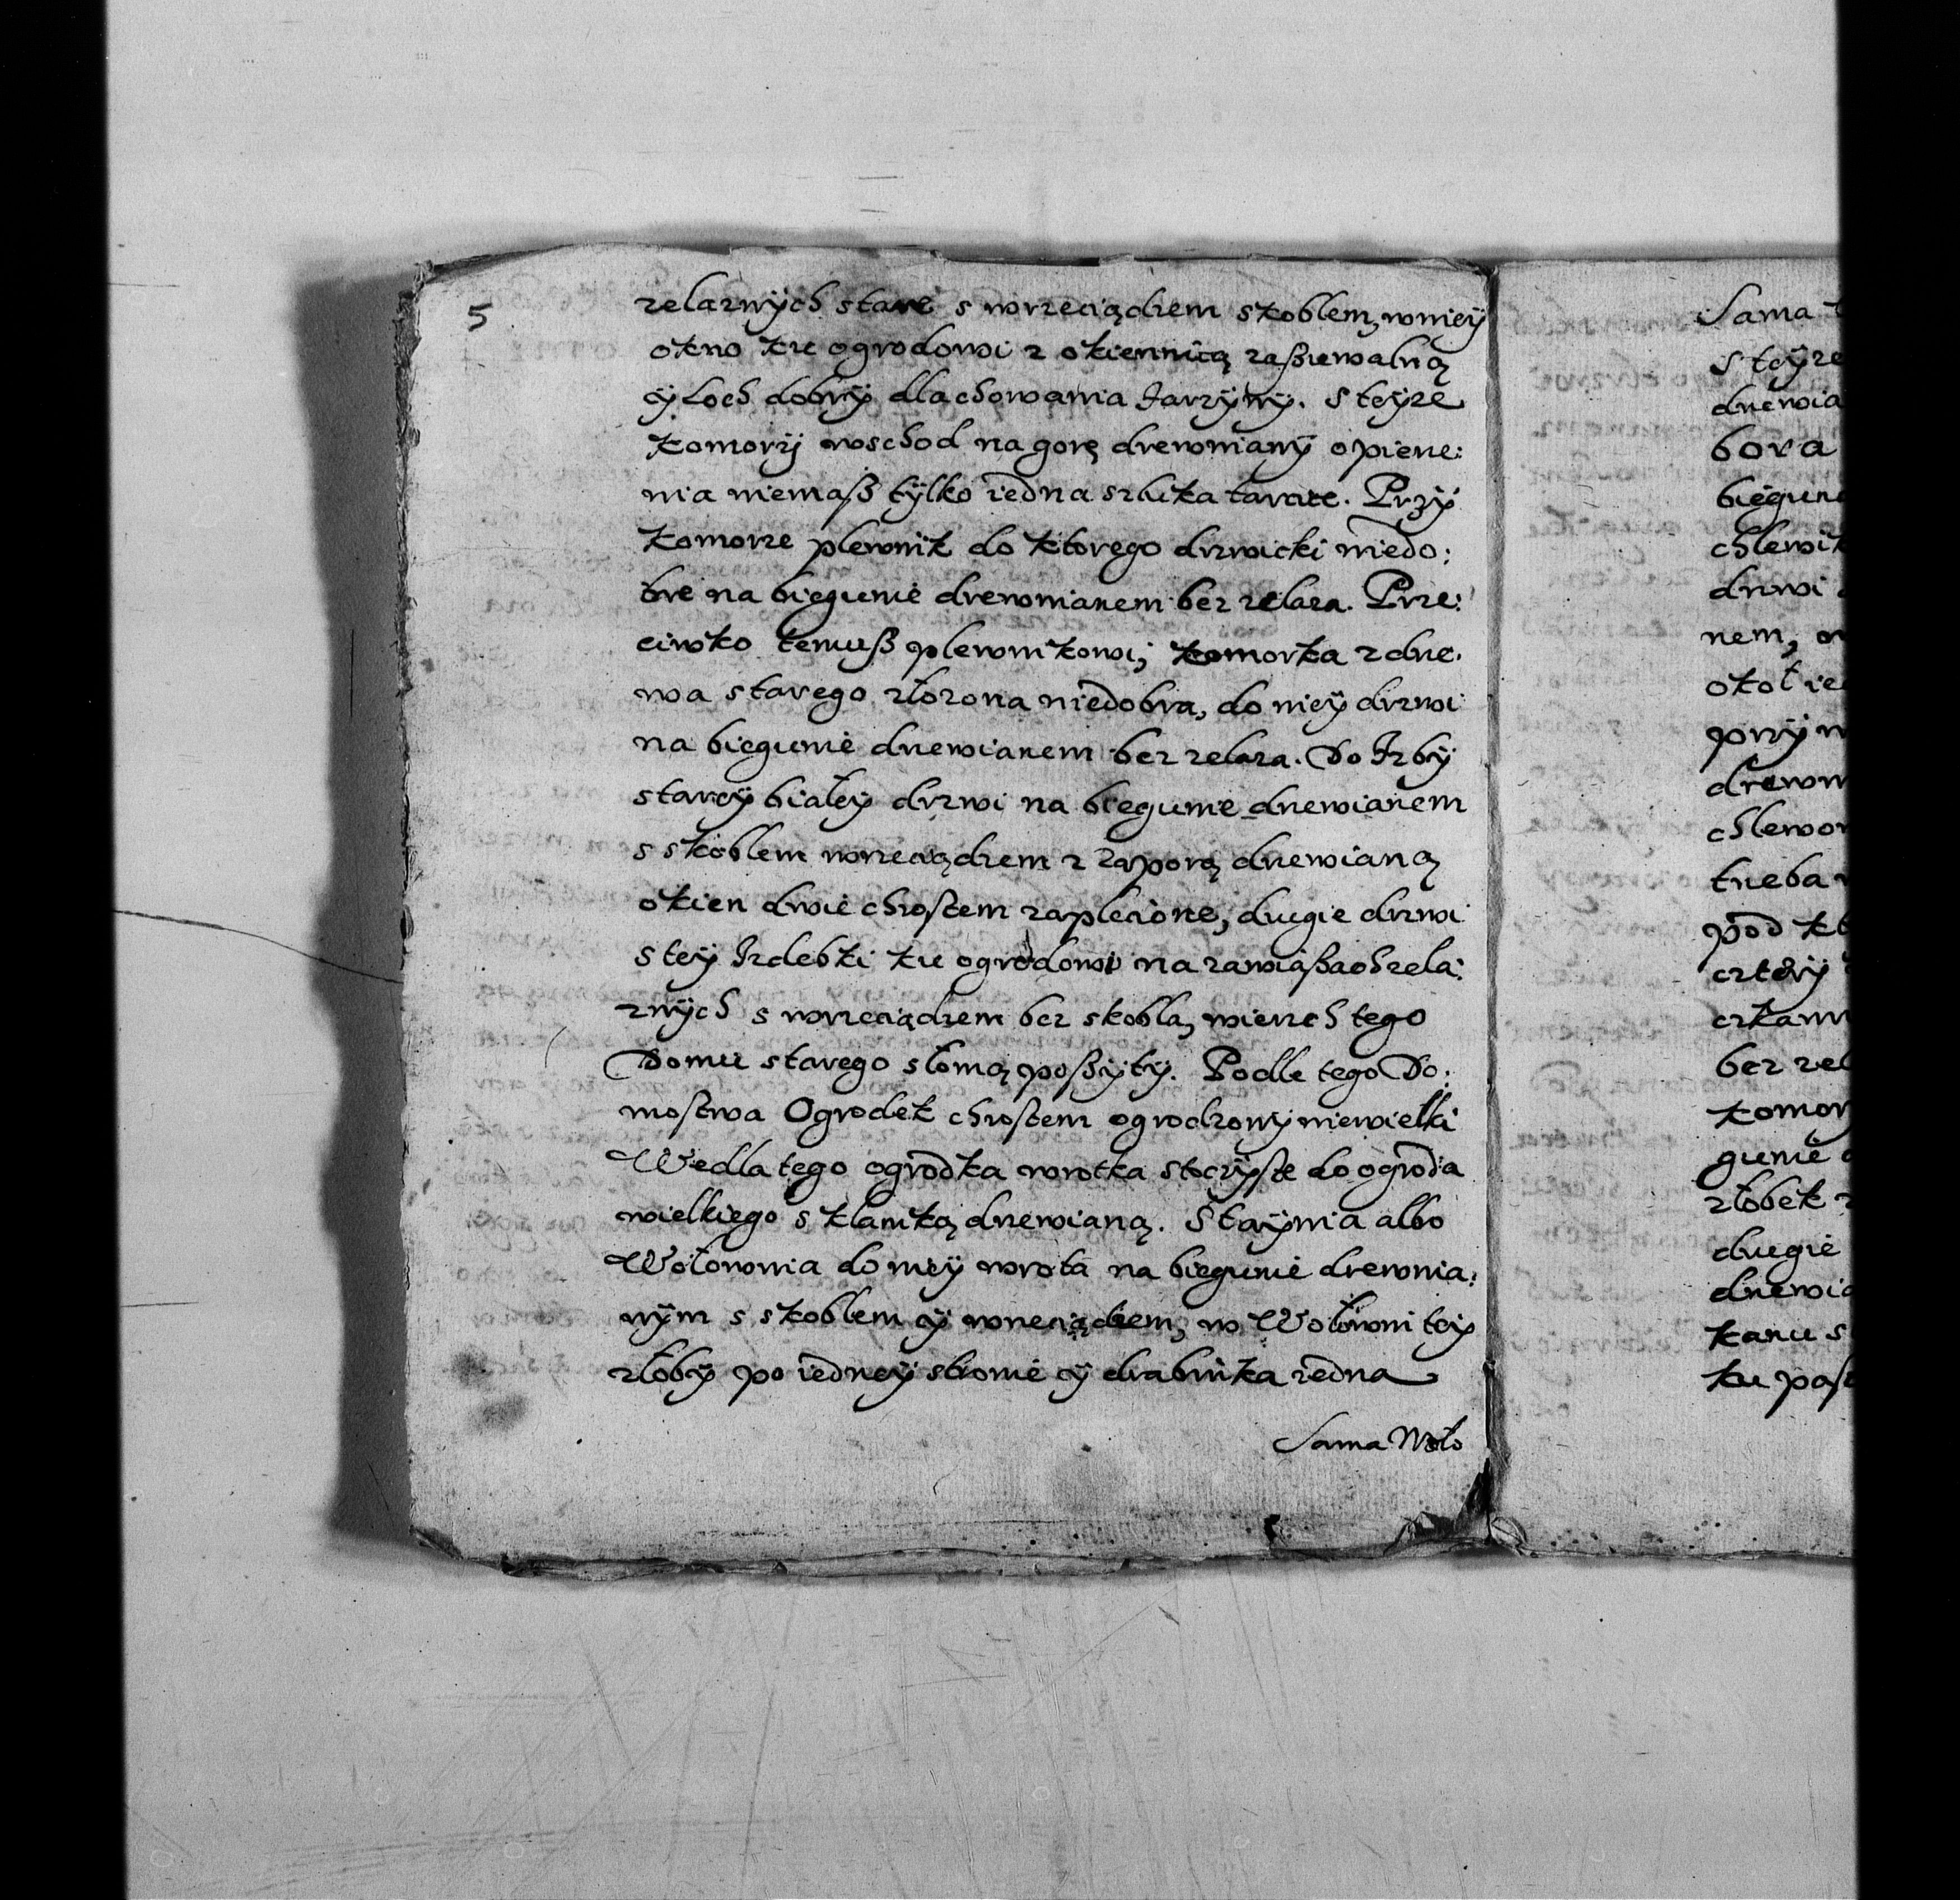 5
zelaznych stare s wrzeciądzem skoblem, w niey
okno ku ogrodowi z okiennicą zaßuwalną
ÿ Loch dobrÿ dla chowania Jarzÿnÿ. S teyze
Komorÿ wschod na gorę drewnianÿ o piene:
nia niemaß tÿlko iedna sztuka tarcic. Przÿ
Komorze plewnik do ktorego drzwicki niedo:
bre na biegunie drewnianem bez zelaza. Prze:
ciwko temuß plewnikowi, komorka z drze.
wa starego złozona niedobra, do nieÿ drzwi
na biegunie drzewianem bez zelaza. Do Jzbÿ
stareÿ białeÿ drzwi na biegunie drzewianem
s skoblem wrzeciądzem z Zaporą drzewianą
okien dwie chrostem zaplecione, drugie drzwi
s teÿ Jzdebki ku ogrodowi na zawiaßach zela:
znÿch s wrzeciądzem bez skobla, wierzch tego
Domu starego słomą poßÿtÿ. Podle tego Do:
mostwa Ogrodek chrostem ogrodzonÿ niewielki
Wedla tego ogrodka wrotka stoczÿste do ogroda
wielkiego s klamką drzewianą. Staÿnia albo
Wołownia do nieÿ wrota na biegunie drewnia:
nÿm s skoblem ÿ wrzeciądzem, w Wołowni teÿ
złobÿ po iedneÿ stronie ÿ drabinka iedna
Sama Woło
Sama
S teÿze
drzewia
bora
biegun
chlewik
drzwi
nem,
okoł ie
przÿ
drewn
chlewo
trzeba
pod kt
cztery
bez zel
komor
gunie
złobek
drugie
drzewia
ku